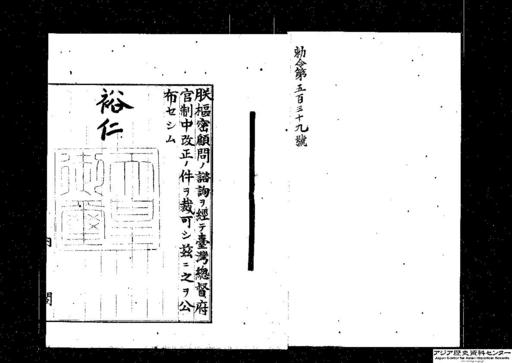 勅令第五百三十九號
朕樞密顧問ノ諮詢ヲ經テ臺灣總督府
官制中改正ノ件ヲ裁可シ茲ニ之ヲ公
布セシム
裕仁
天皇
御璽
内閣
アジア歴史資料センター
Japan Center for Asian Historical Records